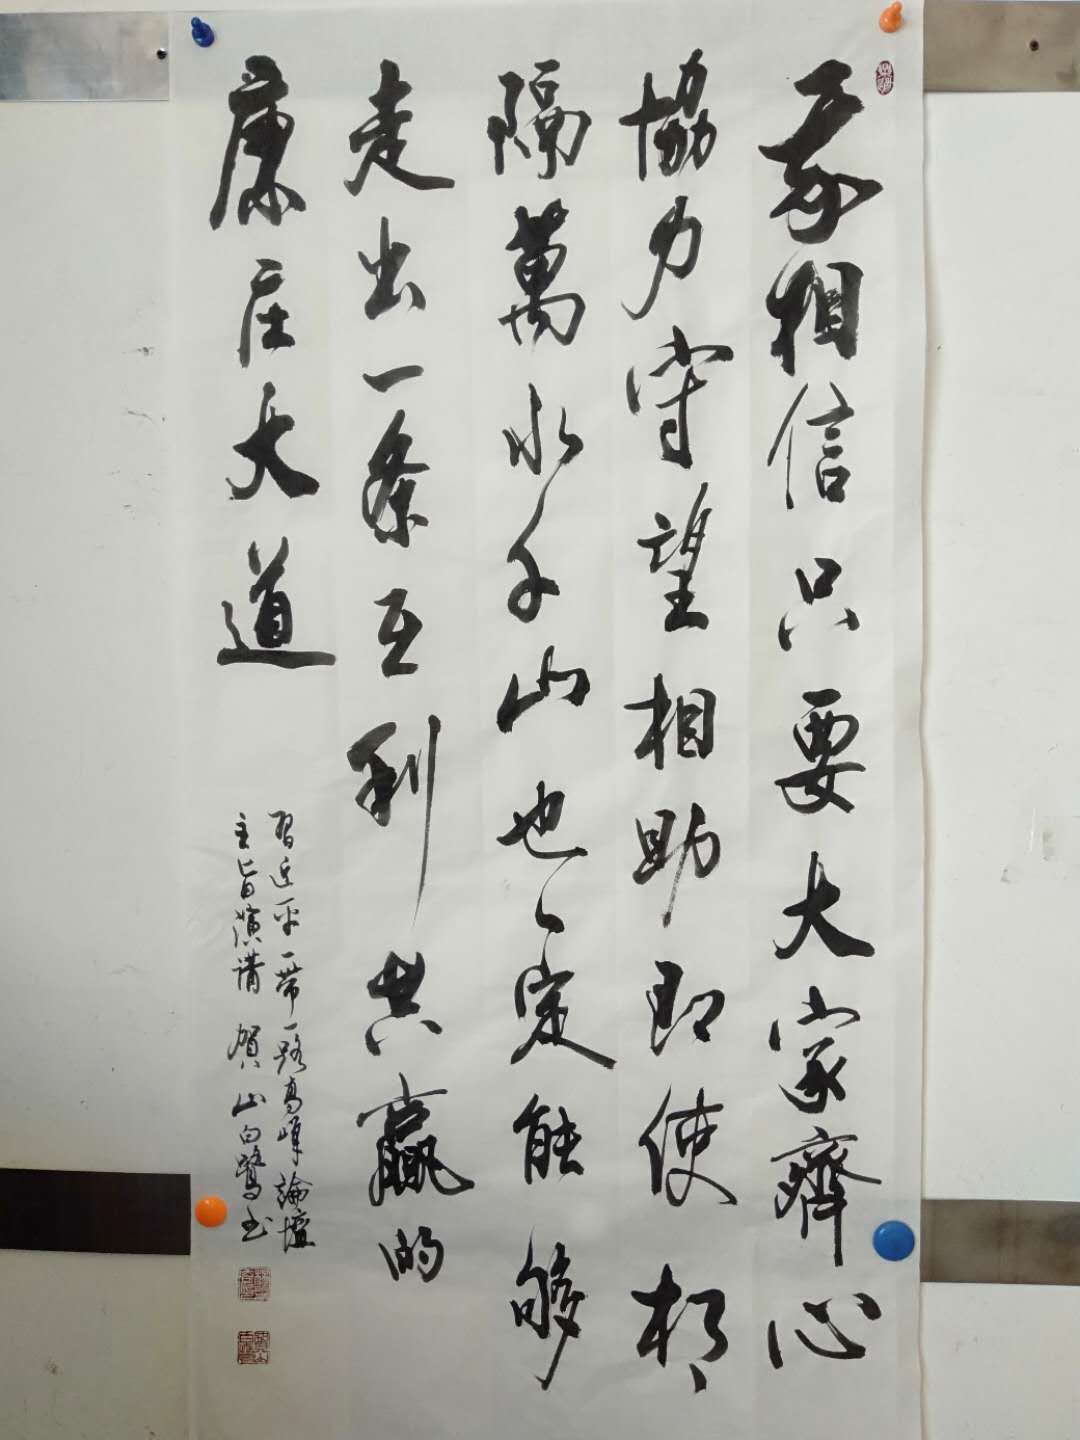 我相信只要大家齊心
協力守望相助即使相
隔萬水千山也一定能够
走出一条互利共赢的
康庄大道
習近平一带一路高峰論壇
主旨演講 賀山白鷺书